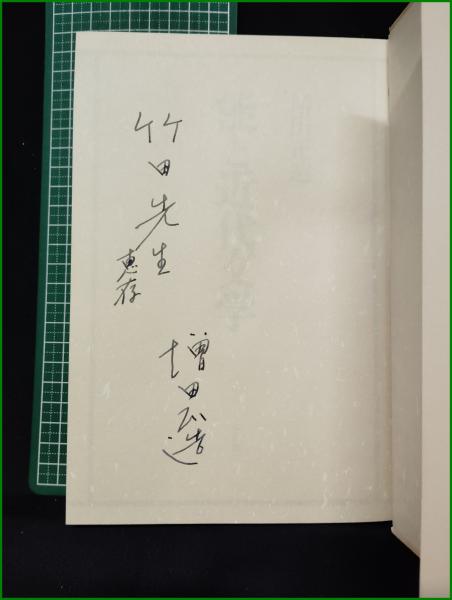 竹田先生
恵存
増田正造